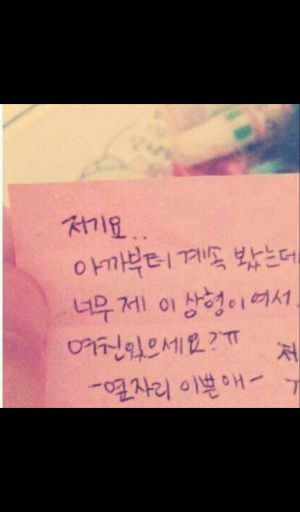 저기요..
아까부터 계속 봤는데
너무 제 이상형이여서.
여친있으세요?ㅠ
저
-옆자리 이쁜애-